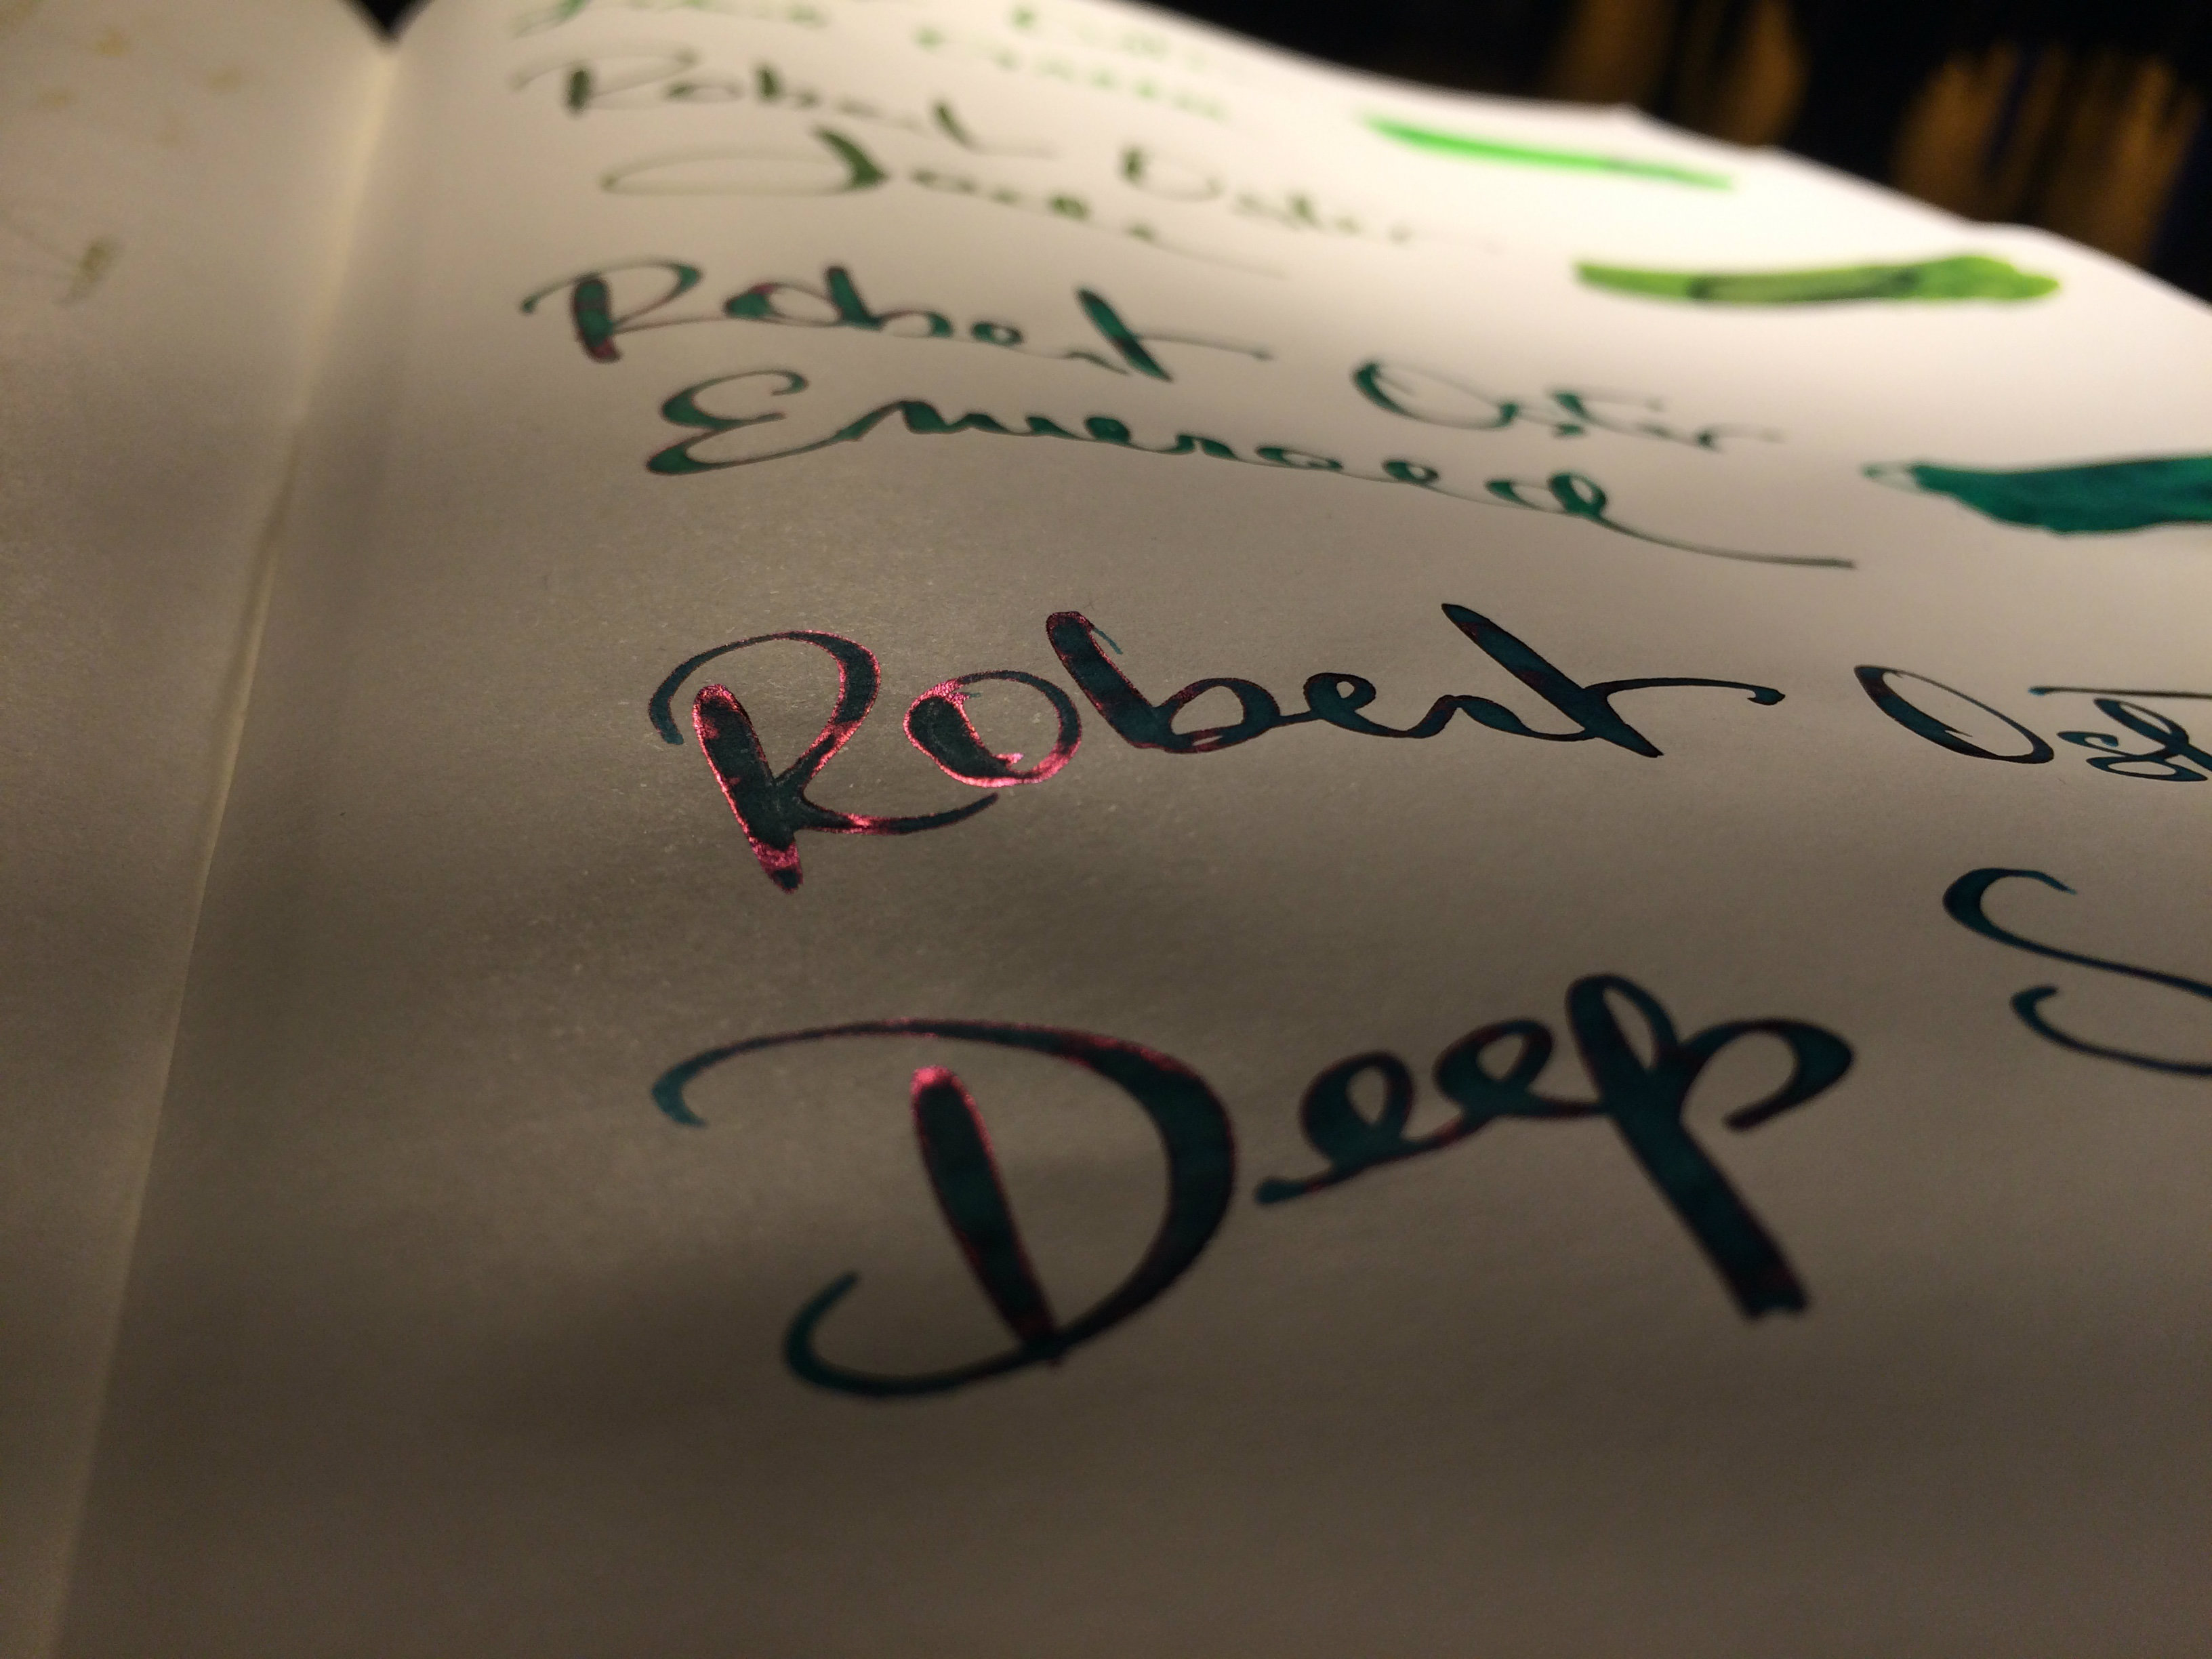 Robert Oster
Robert Oster
Emerald
Robert Ost
Deep S